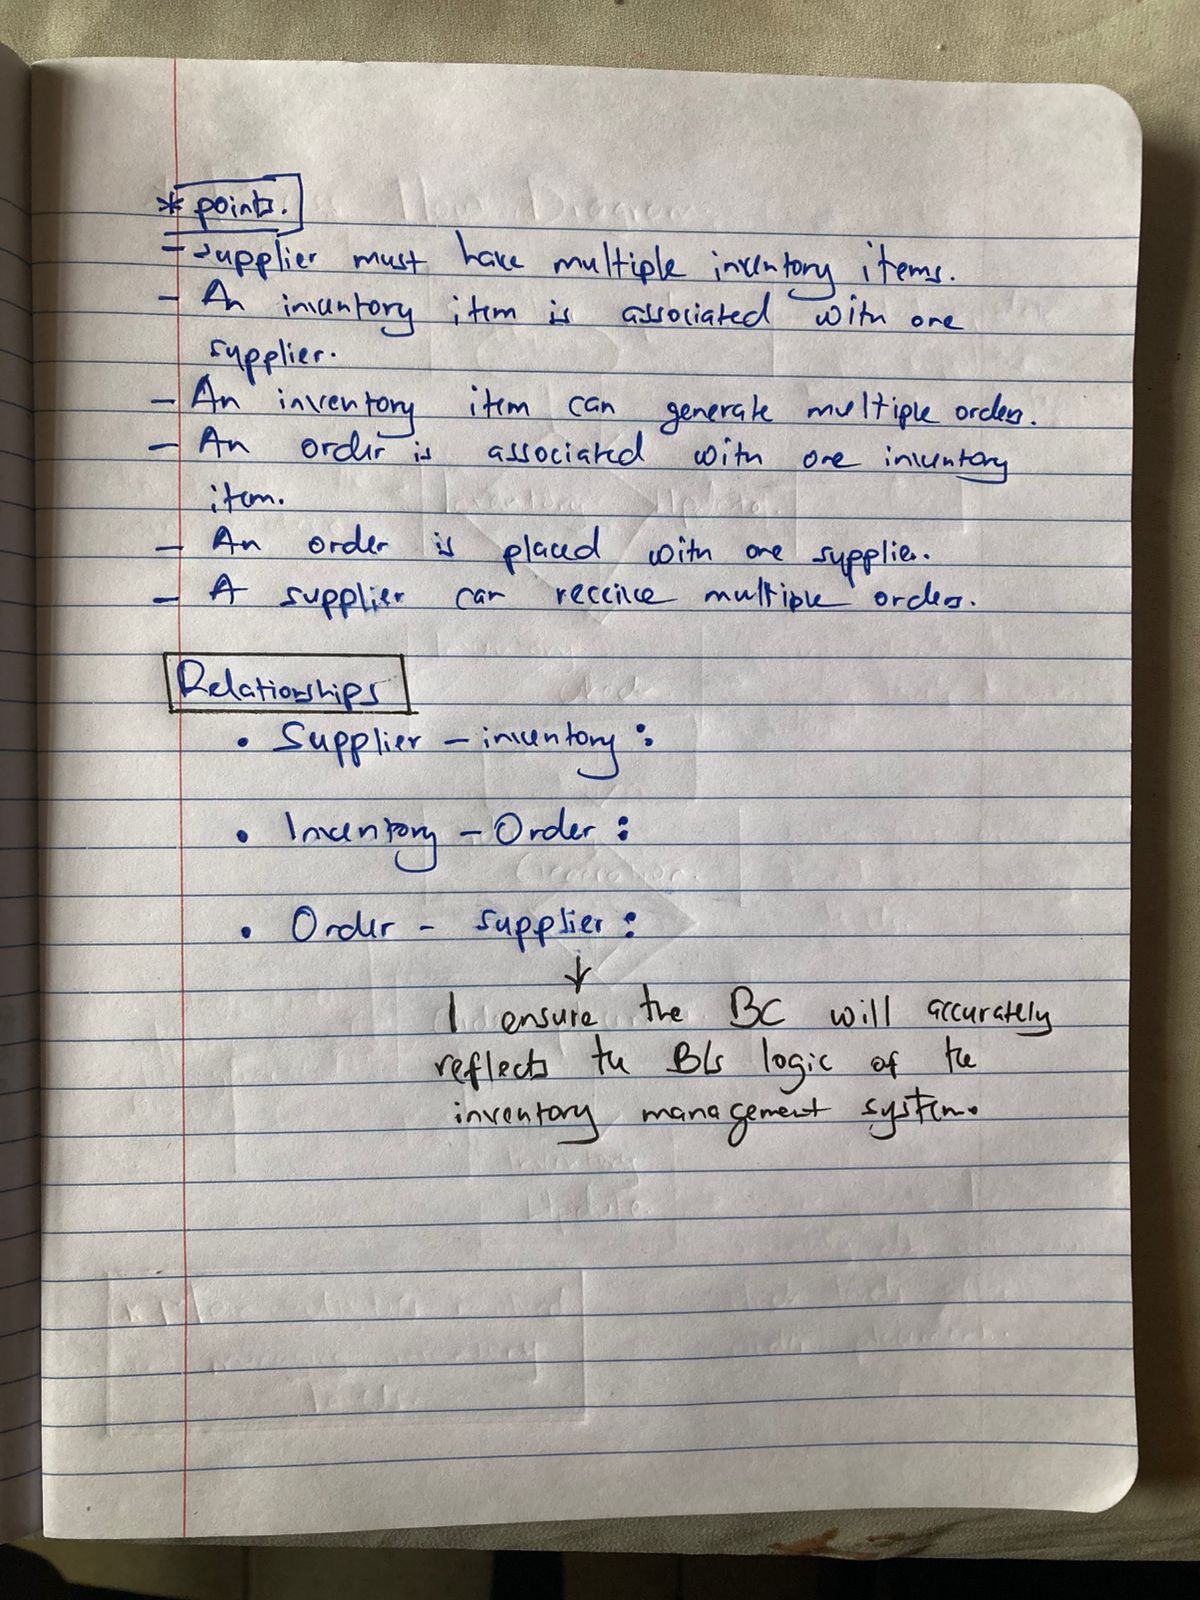 * points.
- Supplier must have multiple inventory items.
- An inventory item is associated with one
supplier.
- An inventory item can generate multiple orders.
- An order is associated with one inventory
item.
- An order is placed with one supplier.
- A supplier can receive multiple orders.
Relationships
• Supplier - inventory :
• Inventory - Order :
• Order - supplier :
↓
I ensure the BC will accurately
reflects the BLs logic of the
inventory management system.